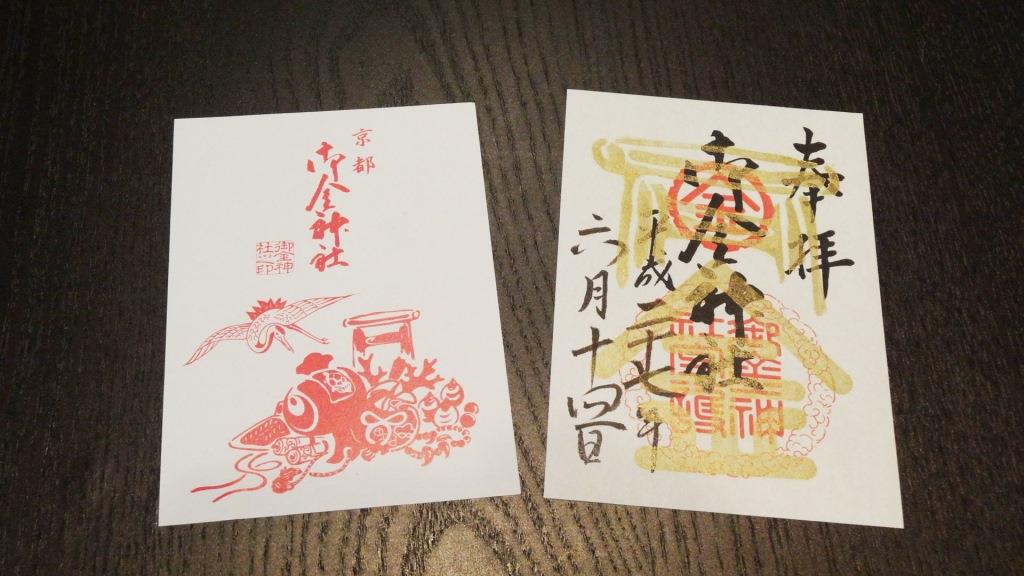 京都
御金神社
御金神
社之印
奉拝
御金神社
平成二十七年
六月十四日
金
御金神